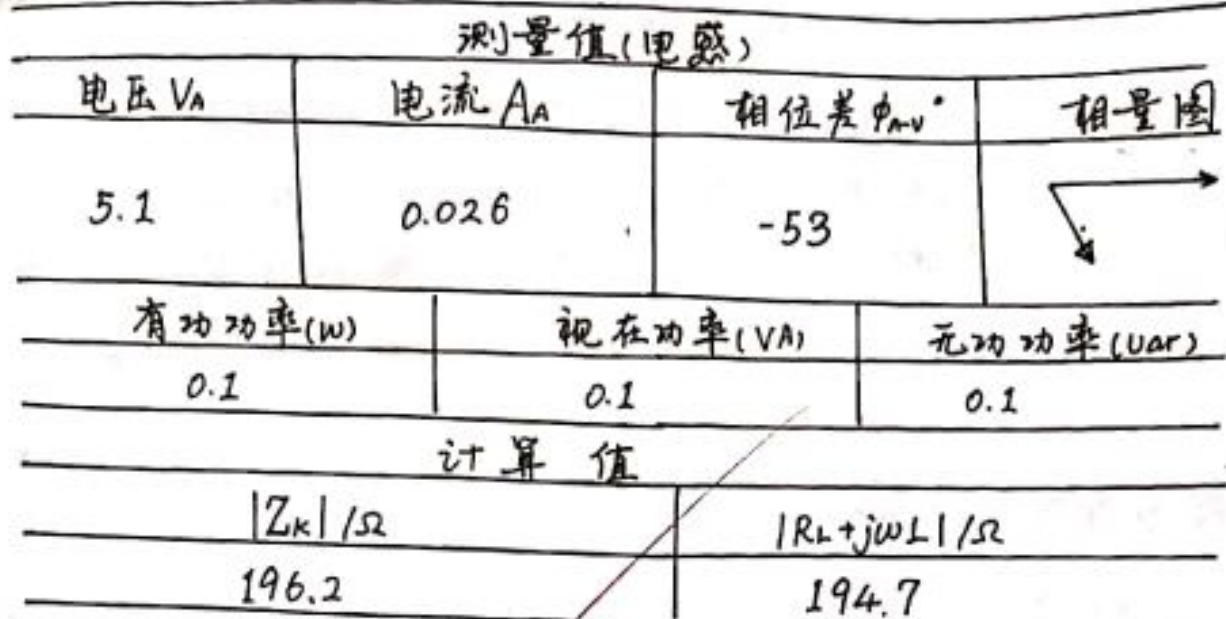 测量值(电感)
电压 VA 电流 AA 相位差 ΦA-V° 相量图
5.1 0.026 -53
有功功率(W) 视在功率(VA) 无功功率(Var)
0.1 0.1 0.1
计算值
|ZK| /Ω |RL+jωL| /Ω
196.2 194.7